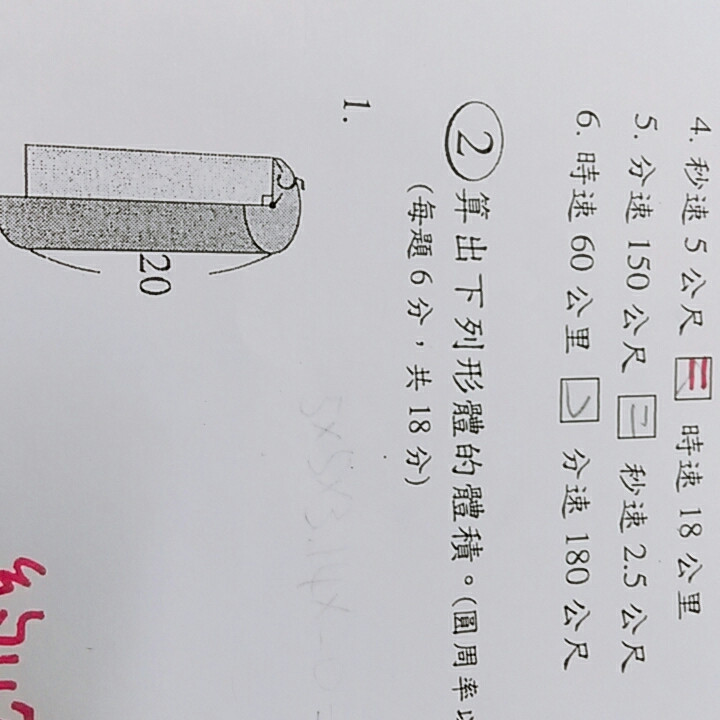 4. 秒速 5 公尺 = 時速 18 公里
5. 分速 150 公尺 = 秒速 2.5 公尺
6. 時速 60 公里 分速 180 公尺
2 算出下列形體的體積。(圓周率以
(每題 6 分，共 18 分)
1.
5
20
5×5×3.14×